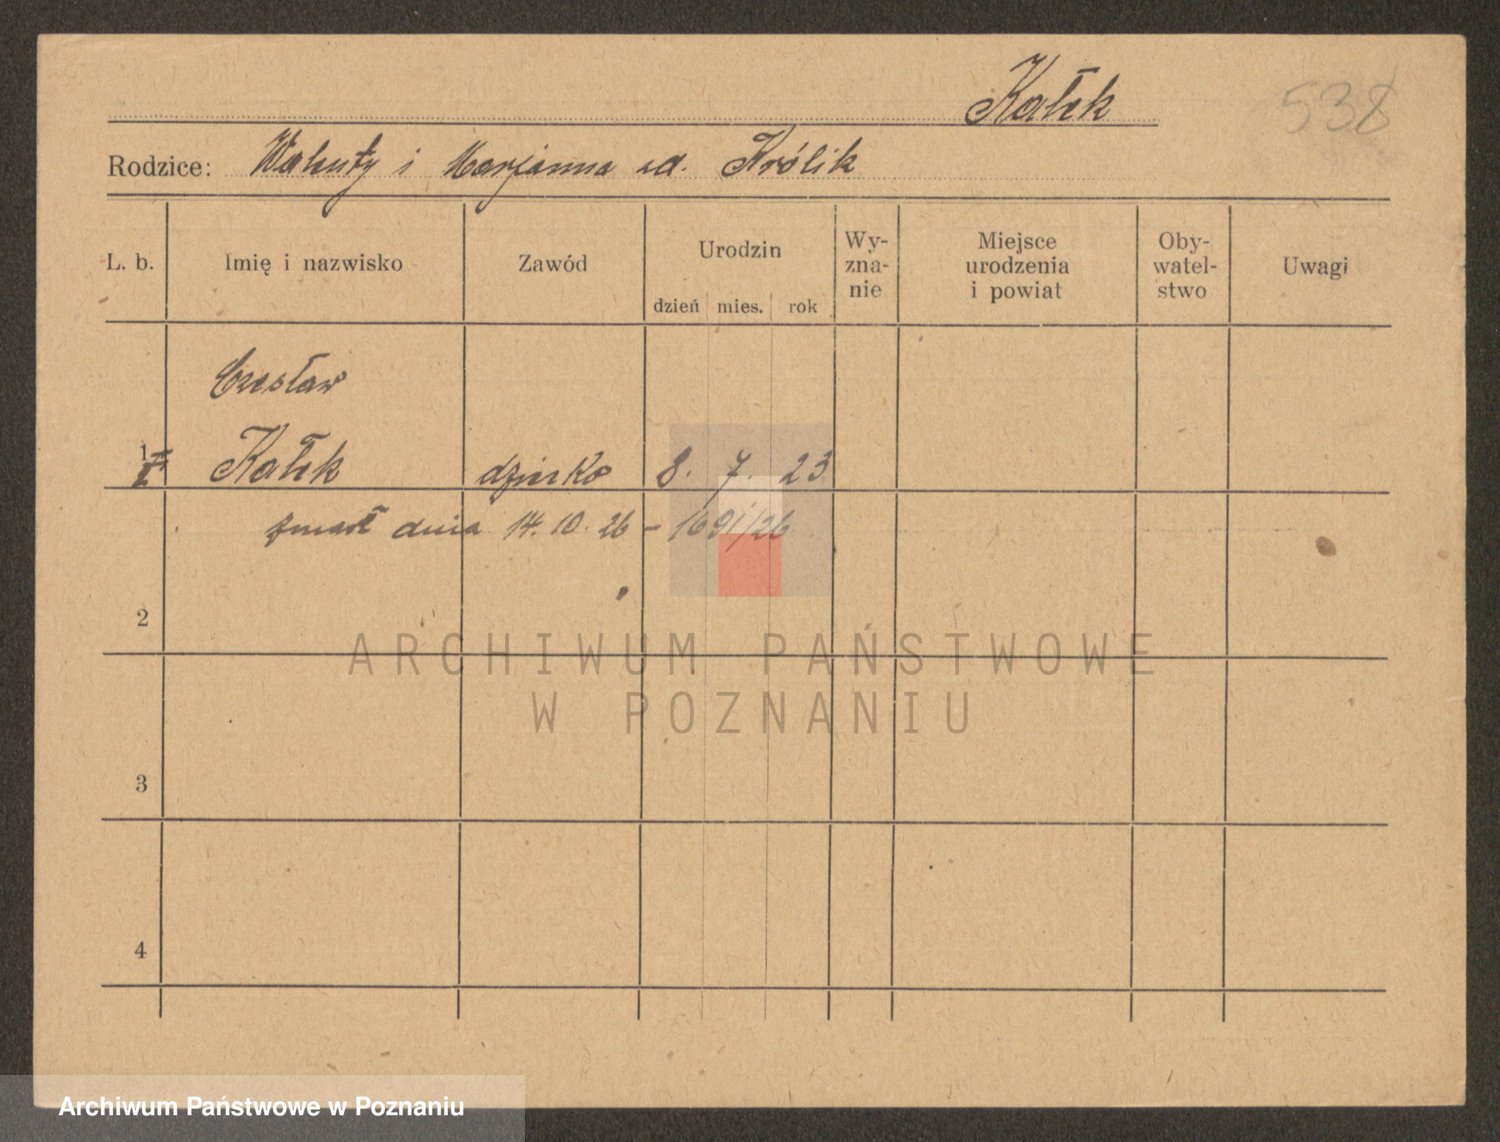 Kałek
538
Rodzice: Walenty i Marjanna zd. Królik
L. b. Imię i nazwisko Zawód Urodzin dzień mies. rok Wy-zna-nie Miejsce urodzenia i powiat Oby-watel-stwo Uwagi
Czesław
1 Kałek dziecko 8. 7. 23
zmarł dnia 14. 10. 26 – 1691/26
2
ARCHIWUM PAŃSTWOWE
W POZNANIU
3
4
Archiwum Państwowe w Poznaniu